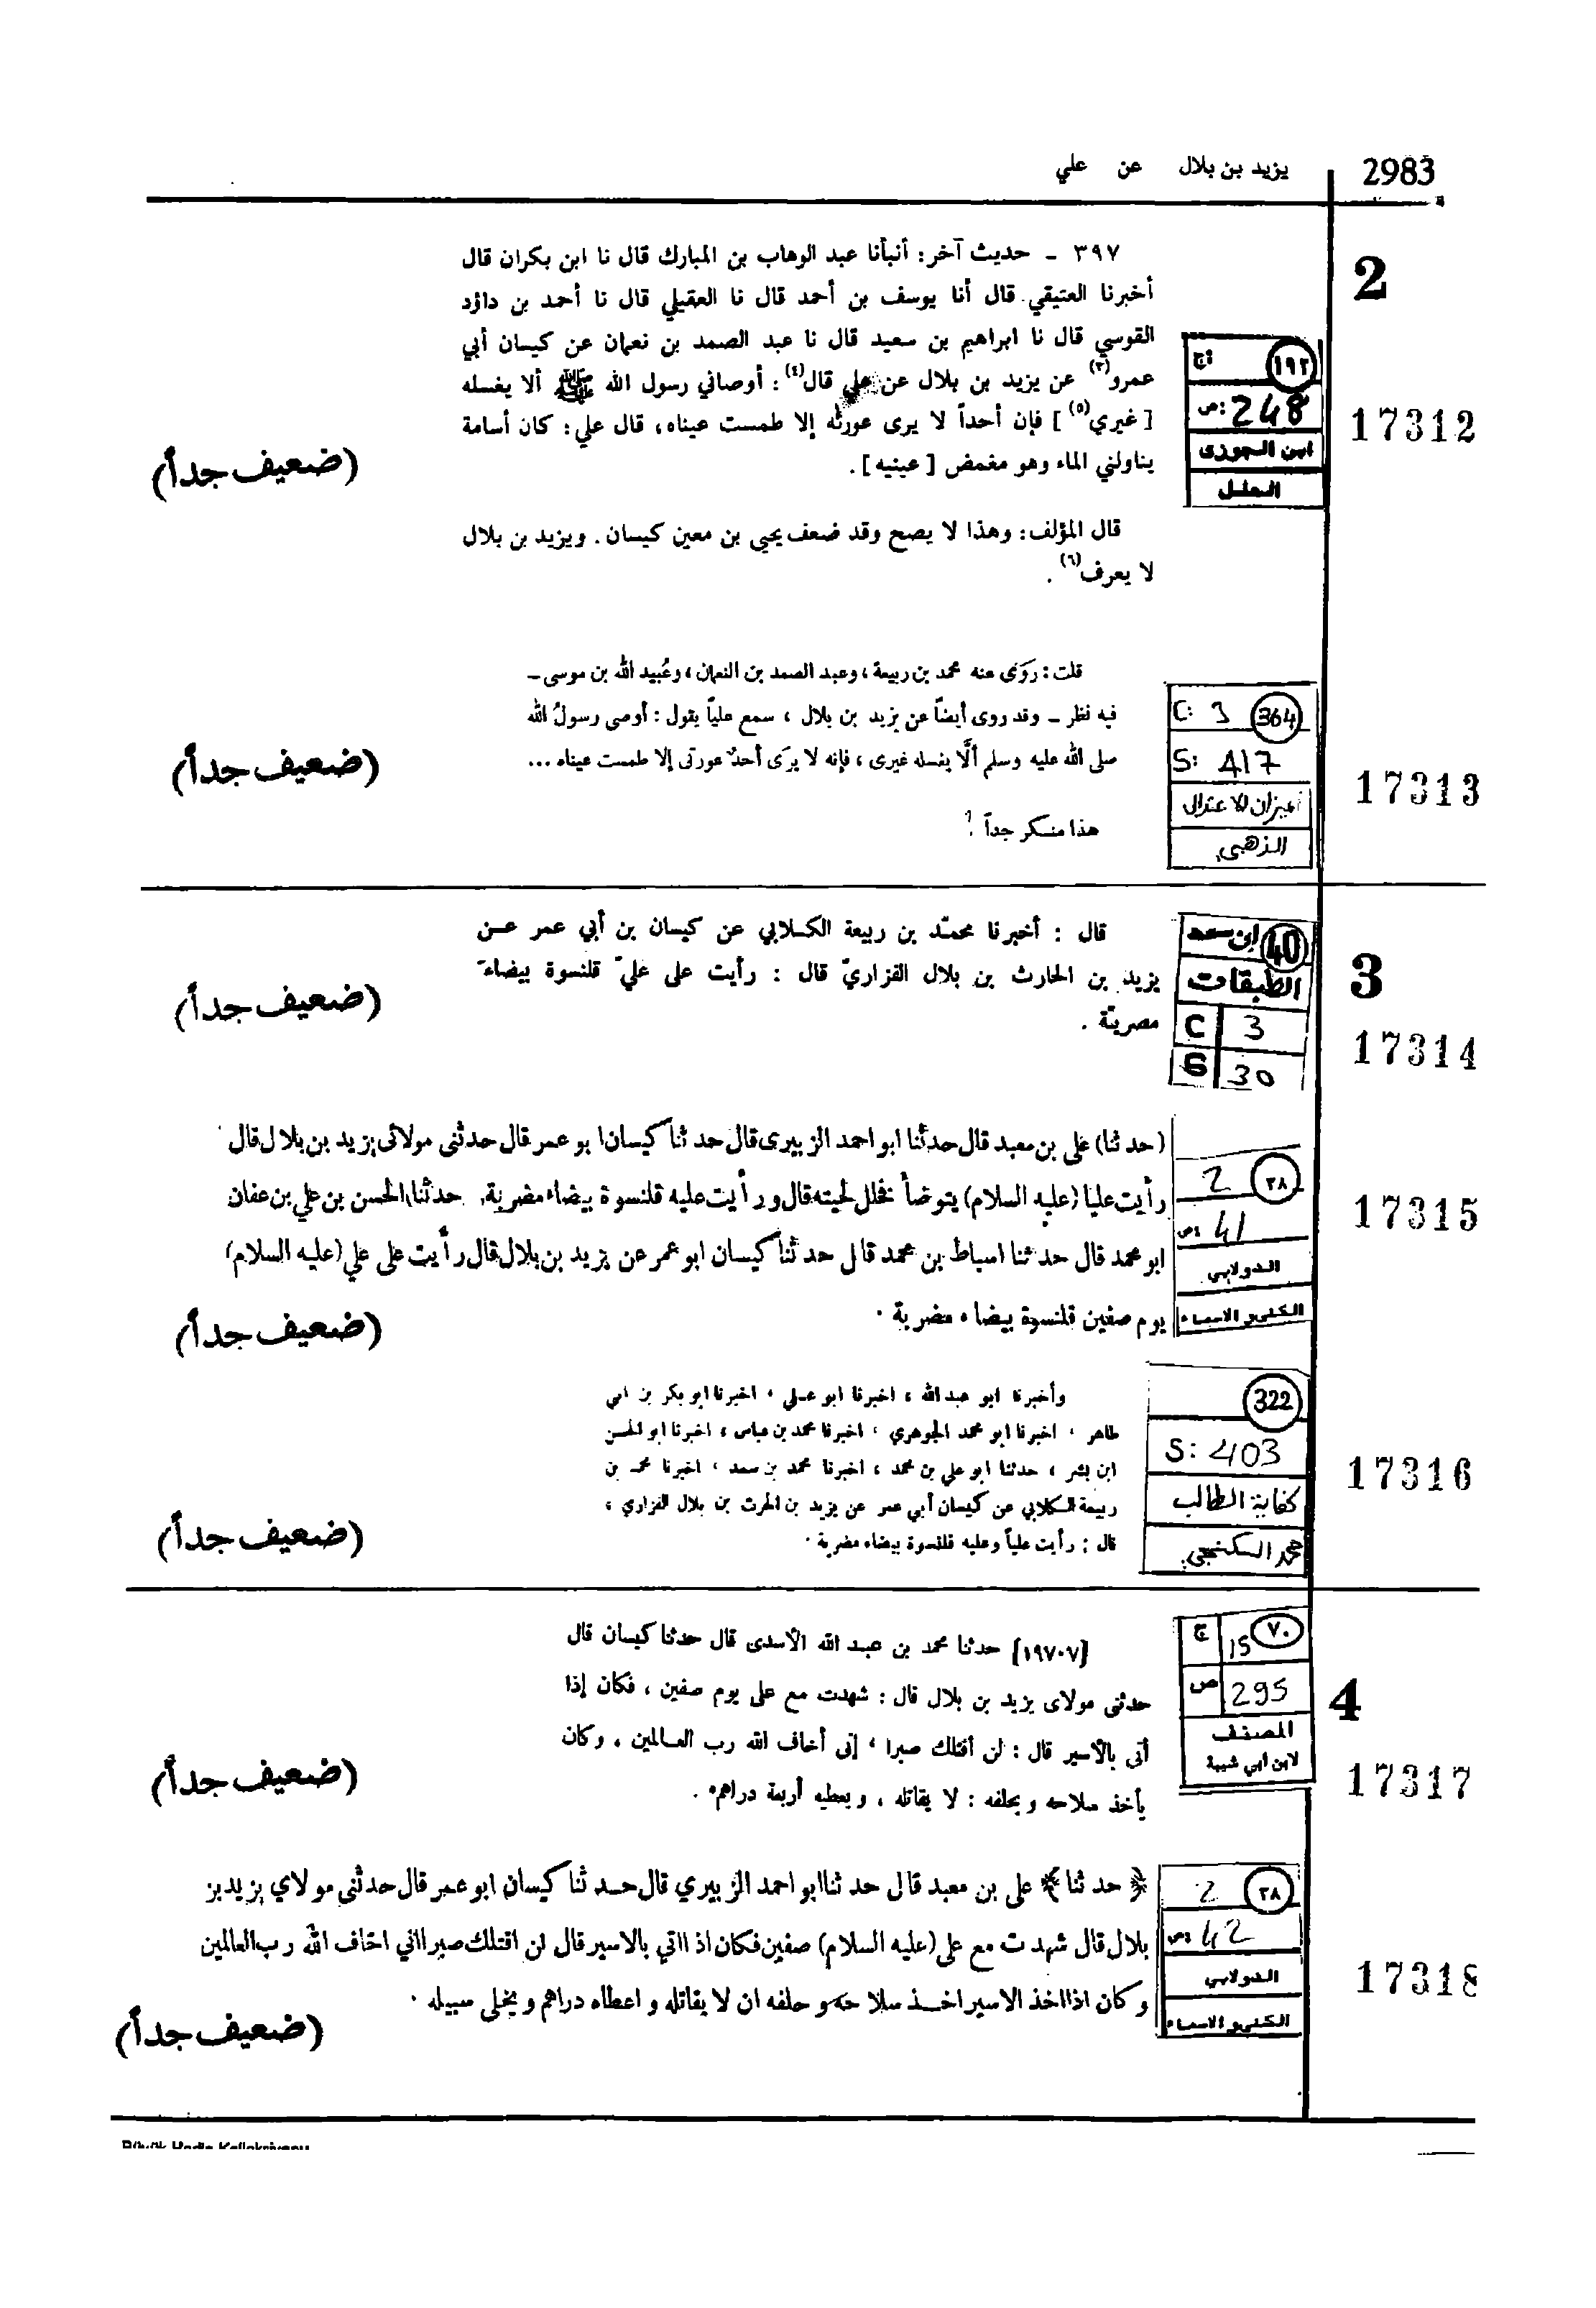 2983 يزيد بن بلال عن علي
2
٣٩٧ - حديث آخر: أنبأنا عبد الوهاب بن المبارك قال نا ابن بكران قال
أخبرنا العتيقي قال أنا يوسف بن أحمد قال نا العقيلي قال نا أحمد بن داؤد
القوسي قال نا ابراهيم بن سعيد قال نا عبد الصمد بن نعمان عن كيسان أبي
عمرو(٣) عن يزيد بن بلال عن علي قال(٤): أوصاني رسول الله ﷺ ألا يغسله
[غيري(٥)] فإن أحداً لا يرى عورته إلا طمست عيناه، قال علي: كان أسامة
يناولني الماء وهو مغمض [عينيه].
قال المؤلف: وهذا لا يصح وقد ضعف يحيى بن معين كيسان. ويزيد بن بلال
لا يعرف(٦).
١٩٢ ج
ص: 248
ابن الجوزى
العلل
17312
(ضعيف جداً)
قلت: رَوَى عنه محمد بن ربيعة، وعبد الصمد بن النعمان، وعُبيد الله بن موسى -
فيه نظر - وقد روى أيضاً عن يزيد بن بلال، سمع علياً يقول: أوصى رسولُ الله
صلى الله عليه وسلم ألَّا يغسله غيرى، فإنه لا يرَى أحدٌ عورتى إلا طمست عيناه ...
هذا منكر جداً.
C: 3 364
S: 417
ميزان الاعتدال
الذهبي
17313
(ضعيف جداً)
3
قال : أخبرنا محمّد بن ربيعة الكلابي عن كيسان بن أبي عمر عن
يزيد بن الحارث بن بلال الفزاريّ قال : رأيت على عليّ قلنسوة بيضاءَ
مصريّة .
40 ابن سعد
الطبقات
C 3
S 30
17314
(ضعيف جداً)
(حدثنا) على بن معبد قال حدثنا ابو احمد الزبيرى قال حدثنا كيسان ابو عمر قال حدثنى مولائى يزيد بن بلال قال
رأيت عليا (عليه السلام) يتوضأ فخلل لحيته قال و رأيت عليه قلنسوة بيضاء مضربة. حدثنا الحسن بن علي بن عفان
ابو محمد قال حدثنا اسباط بن محمد قال حدثنا كيسان ابو عمر عن يزيد بن بلال قال رأيت على علي (عليه السلام)
يوم صفين قلنسوة بيضاء مضربة .
٣٨ 2
ص: 41
الدولابي
الكنى و الاسماء
17315
(ضعيف جداً)
وأخبرنا ابو عبد الله ، اخبرنا ابو علي ، اخبرنا ابو بكر بن ابي
طاهر ، اخبرنا ابو محمد الجوهري ، اخبرنا محمد بن عباس ، اخبرنا ابو الحسن
ابن بشر ، حدثنا ابو علي بن محمد ، اخبرنا محمد بن سعد ، اخبرنا محمد بن
ربيعة الكلابي عن كيسان أبي عمر عن يزيد بن الحرث بن بلال الفزاري ،
قال : رأيت علياً وعليه قلنسوة بيضاء مضربة .
322
S: 403
كفاية الطالب
17316
(ضعيف جداً)
4
[١٩٧٠٧] حدثنا محمد بن عبد الله الأسدى قال حدثنا كيسان قال
حدثنى مولاى يزيد بن بلال قال : شهدت مع على يوم صفين ، فكان إذا
أتى بالأسير قال : لن أقتلك صبرا ، إنى أخاف الله رب العالمين ، وكان
يأخذ سلاحه و يحلفه : لا يقاتله ، و يعطيه أربعة دراهم .
٧٠ 15 ج
295 ص
المصنف
لابن أبي شيبة
17317
(ضعيف جداً)
﴿ حدثنا ﴾ على بن معبد قال حدثنا ابو احمد الزبيري قال حدثنا كيسان ابو عمر قال حدثنى مولاي يزيد بن
بلال قال شهدت مع على (عليه السلام) صفين فكان اذا اتي بالاسير قال لن اقتلك صبرا اني اخاف الله رب العالمين
و كان اذا اخذ الاسير اخذ سلاحه و حلفه ان لا يقاتله و اعطاه دراهم و يخلى سبيله .
٣٨ 2
ص: 42
الدولابي
الكنى و الاسماء
17318
(ضعيف جداً)